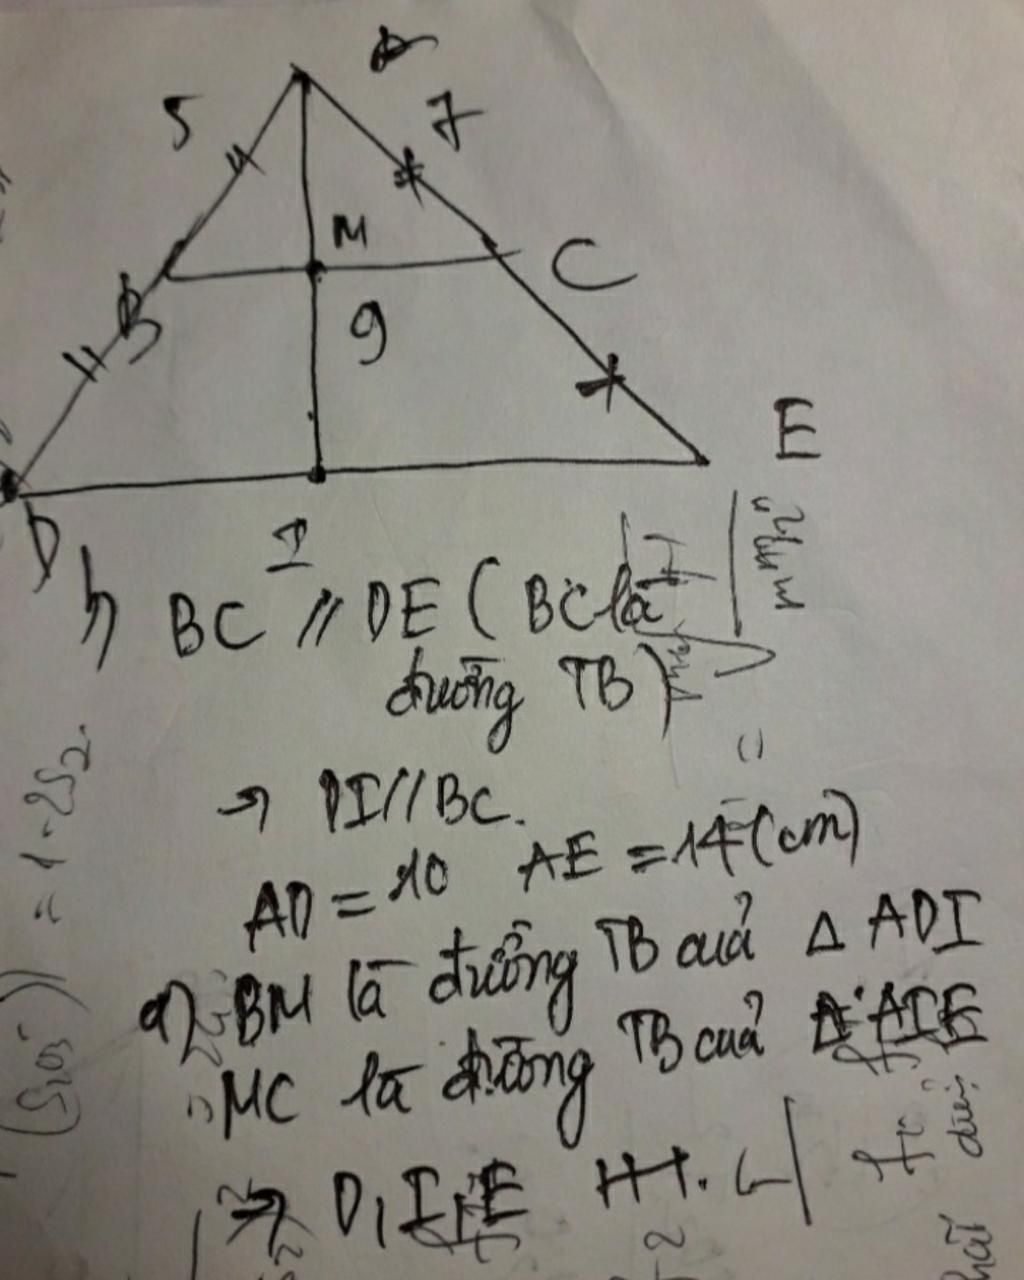 A
5
7
M
B
C
9
E
D
I
h) BC // DE ( BC là
đường TB)
→ DI // BC.
AD = 10 AE = 14 (cm)
a) BM là đường TB cuả Δ ADI
MC là đường TB cuả Δ AIE
⇒ D, I, E
= 1-2S2.